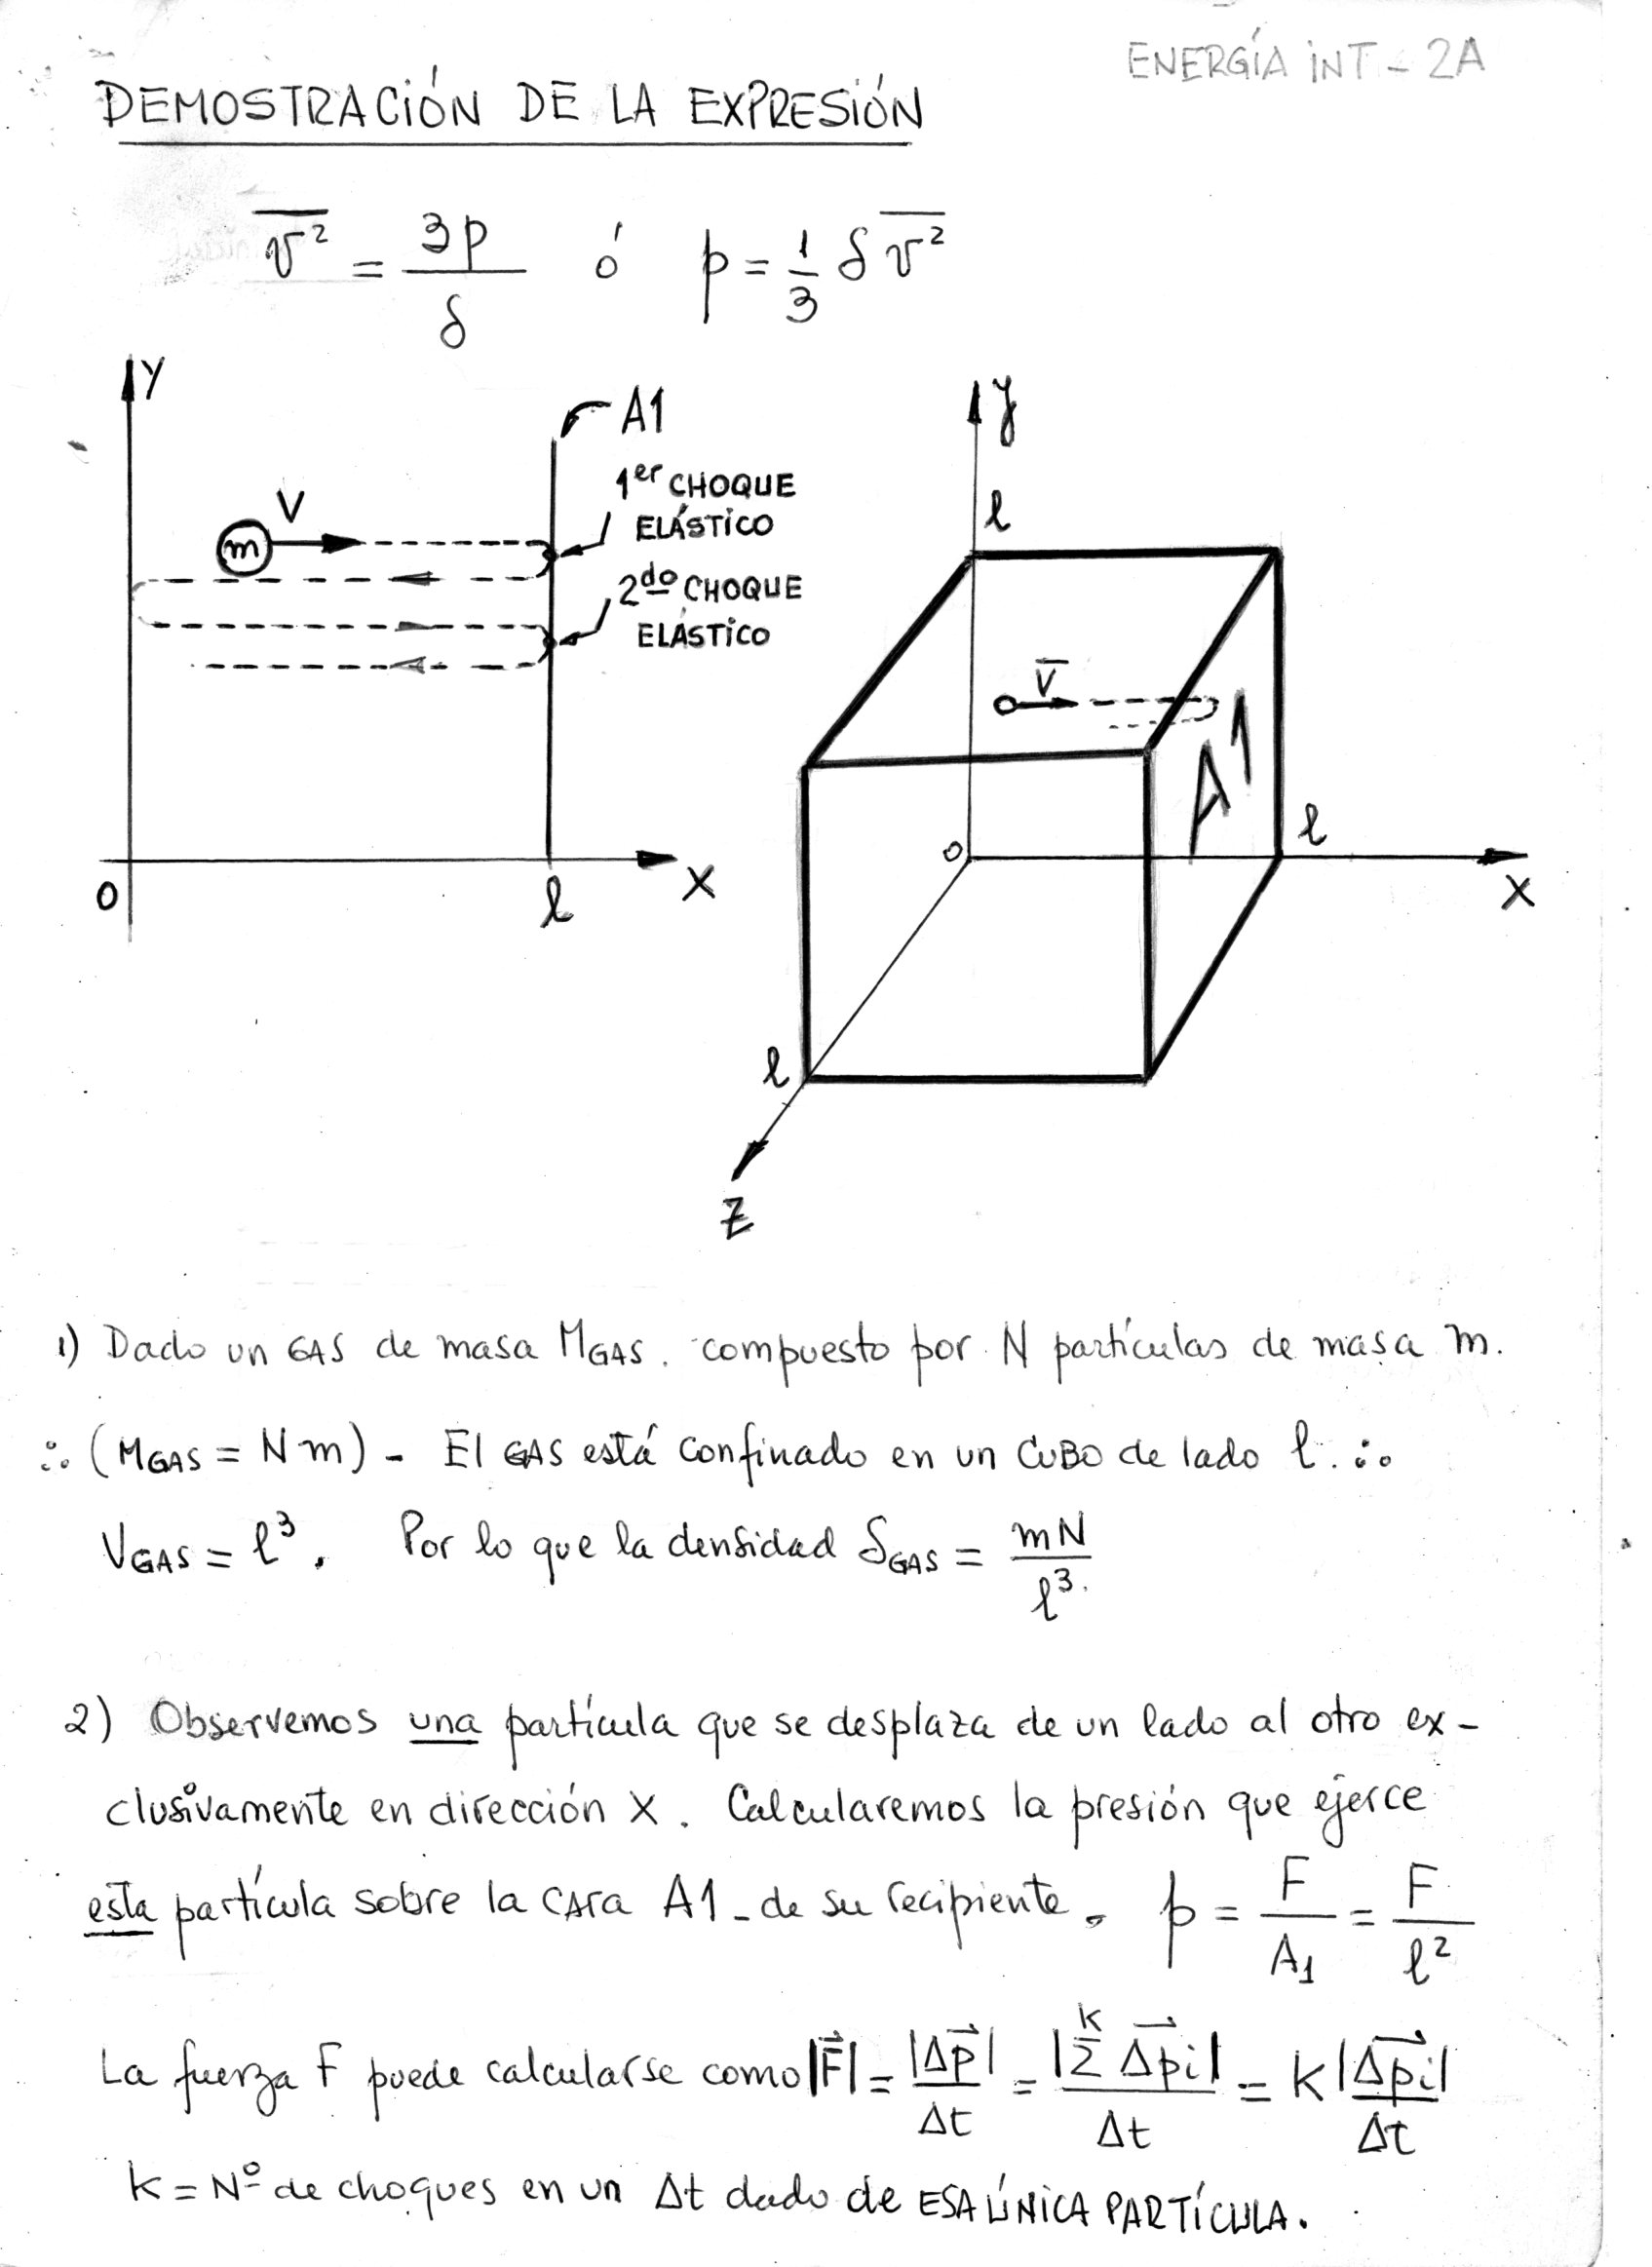 ENERGÍA INT - 2A
DEMOSTRACIÓN DE LA EXPRESIÓN
v̅² = 3p/δ ó p = 1/3 δ v̅²
Y
A1
1er CHOQUE
ELÁSTICO
2do CHOQUE
ELÁSTICO
V
m
O
l
X
y
l
V̅
A1
l
o
X
l
Z
1) Dado un GAS de masa MGAS. compuesto por N partículas de masa m.
∴ (MGAS = N·m) - El GAS está confinado en un CUBO de lado l. ∴
VGAS = l³. Por lo que la densidad δGAS = mN/l³.
2) Observemos una partícula que se desplaza de un lado al otro ex-
clusivamente en dirección X. Calcularemos la presión que ejerce
esta partícula sobre la CARA A1 - de su recipiente. p = F/A1 = F/l²
La fuerza F puede calcularse como |F⃗| = |Δp⃗|/Δt = |Σᴷ Δp⃗i|/Δt = K|Δp⃗i|/Δt
K = Nº de choques en un Δt dado de ESA ÚNICA PARTÍCULA.